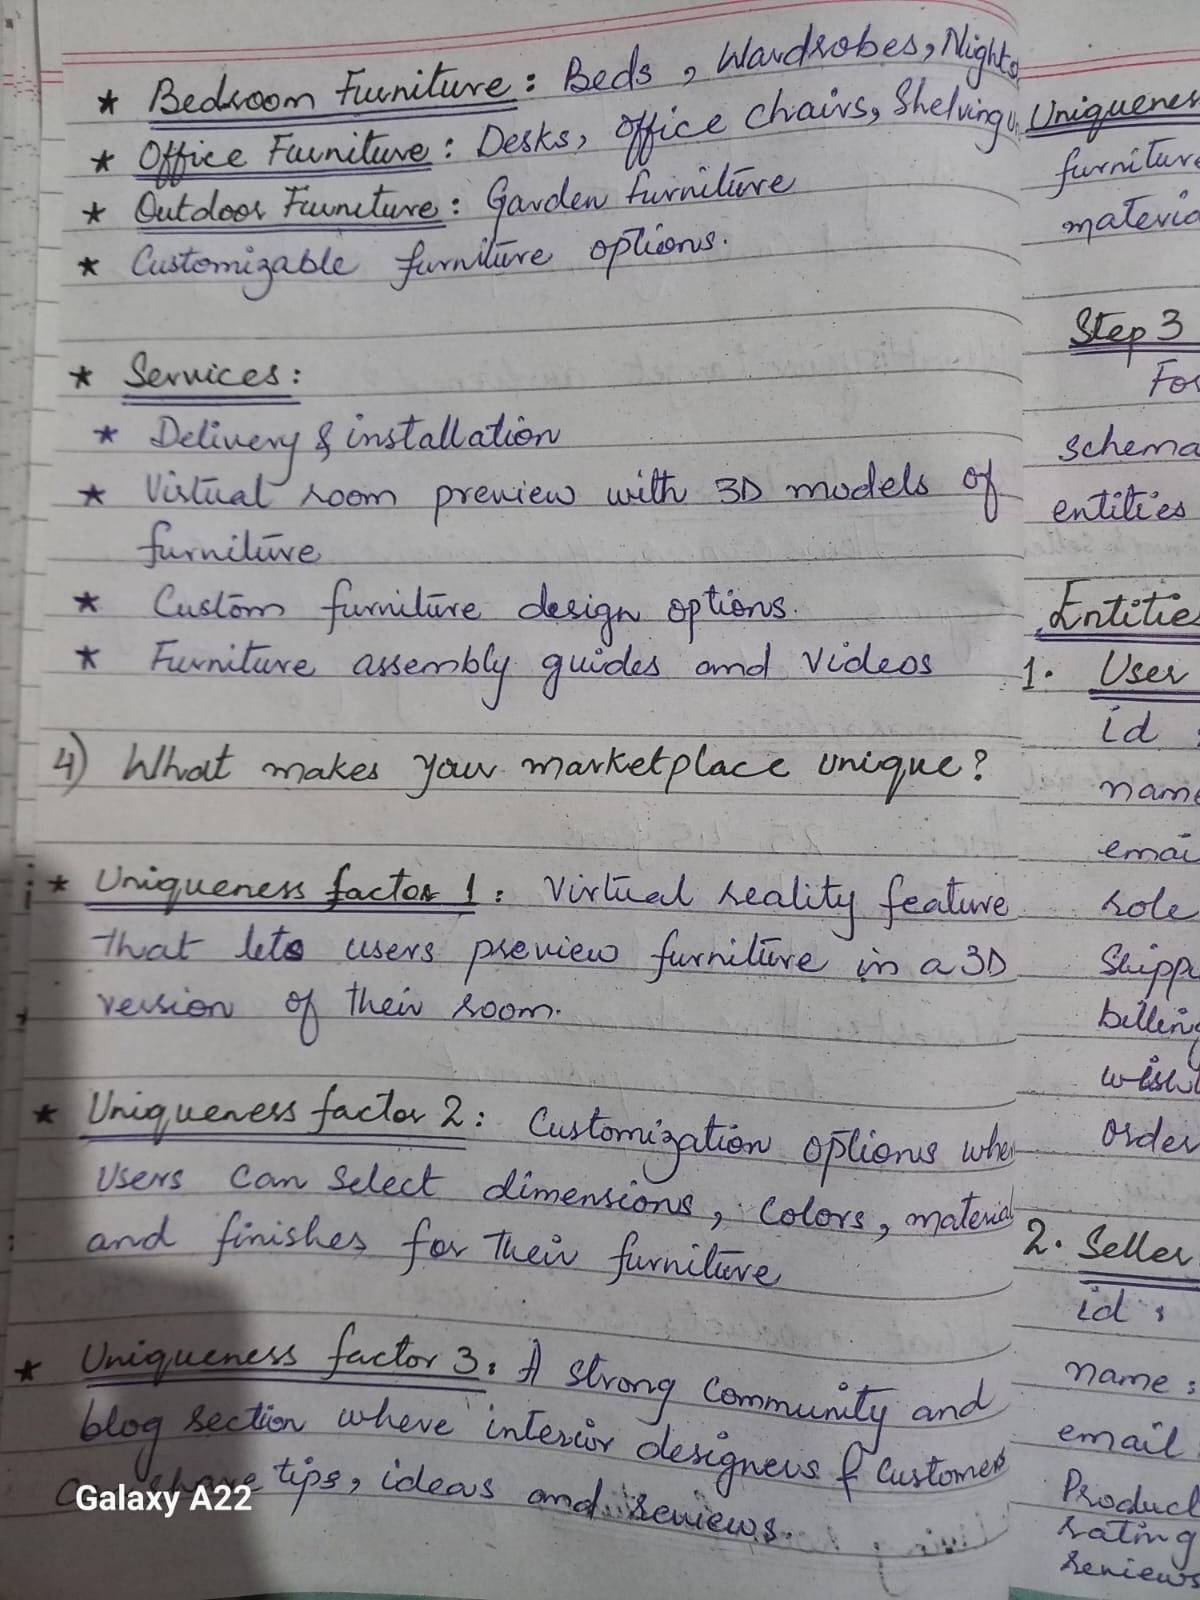 ★ Bedroom Furniture: Beds, Wardrobes, Nights
★ Office Furniture: Desks, office chairs, Shelving
★ Outdoor Furniture: Garden furniture
★ Customizable furniture options.
★ Services:
★ Delivery & installation
★ Virtual room preview with 3D models of
furniture
★ Custom furniture design options.
★ Furniture assembly guides and videos
4) What makes your marketplace unique?
★ Uniqueness factor 1: Virtual reality feature
that lets users preview furniture in a 3D
version of their room.
★ Uniqueness factor 2: Customization options whe
users can select dimensions, colors, material
and finishes for their furniture
★ Uniqueness factor 3: A strong community and
blog section where interior designers & customers
share tips, ideas and reviews.
Galaxy A22
Uniquenes
furniture
materia
Step 3
For
schema
entities
Entities
1. User
id :
name
emai
role
Shippi
billing
wishl
order
2. Seller
id :
name :
email
Product
rating
reviews